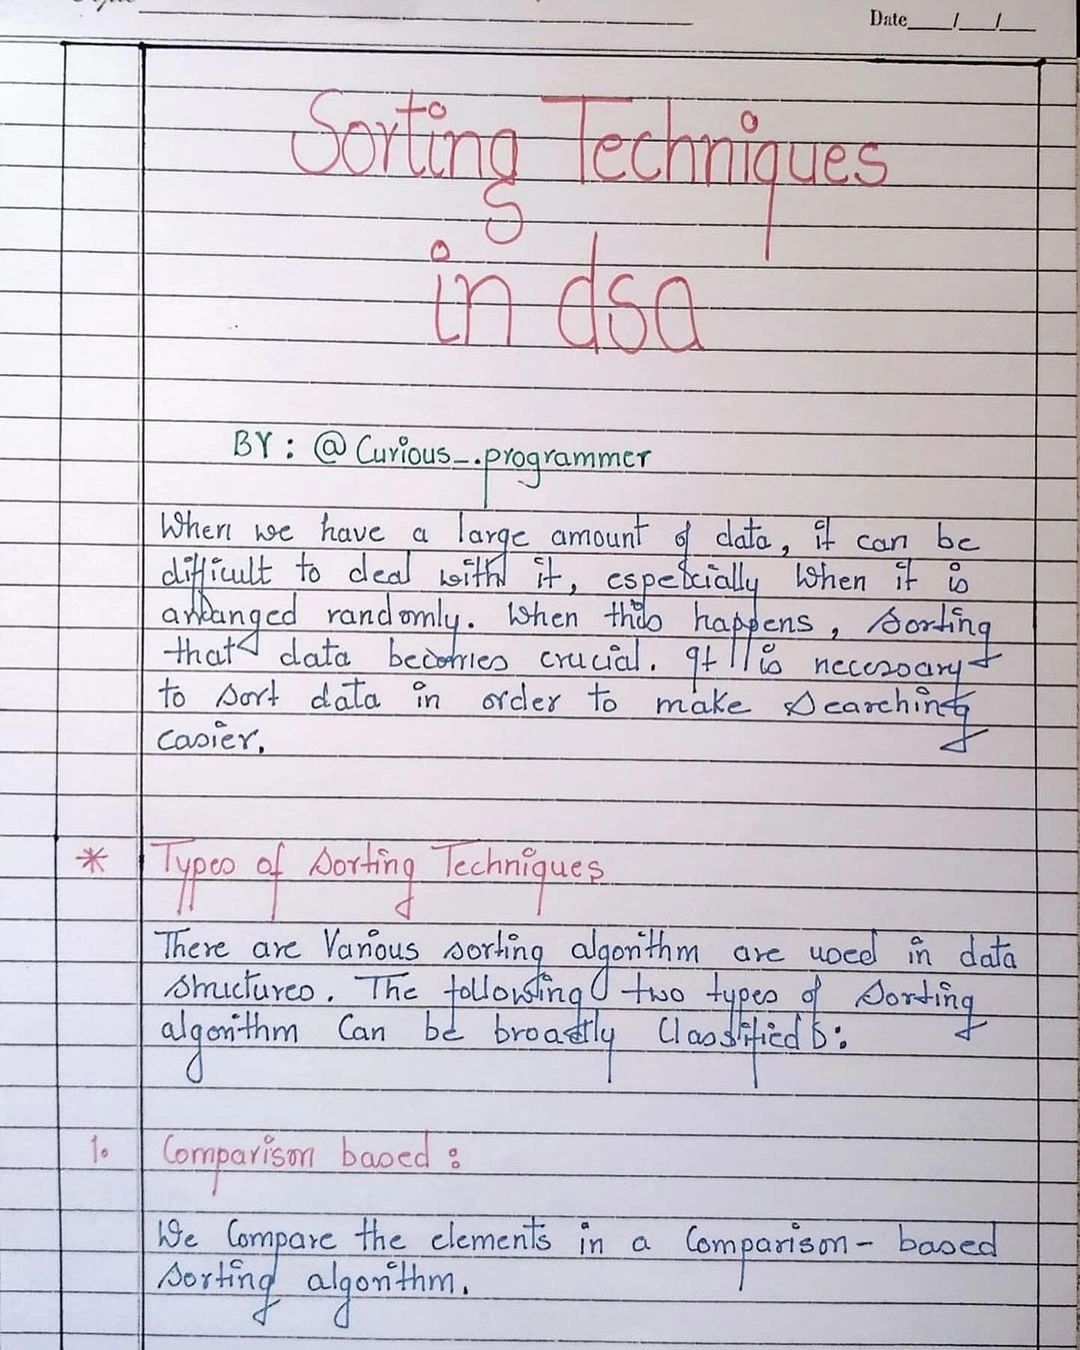 Date___/___/___
Sorting Techniques
in dsa
BY : @Curious_.programmer
When we have a large amount of data, it can be
difficult to deal with it, especially when it is
arranged randomly. When this happens, sorting
that data becomes crucial. It is necessary
to sort data in order to make searching
easier.
* Types of Sorting Techniques
There are Various sorting algorithm are used in data
structures. The following two types of sorting
algorithm Can be broadly Classified :
1. Comparison based :
We Compare the elements in a Comparison-based
sorting algorithm.